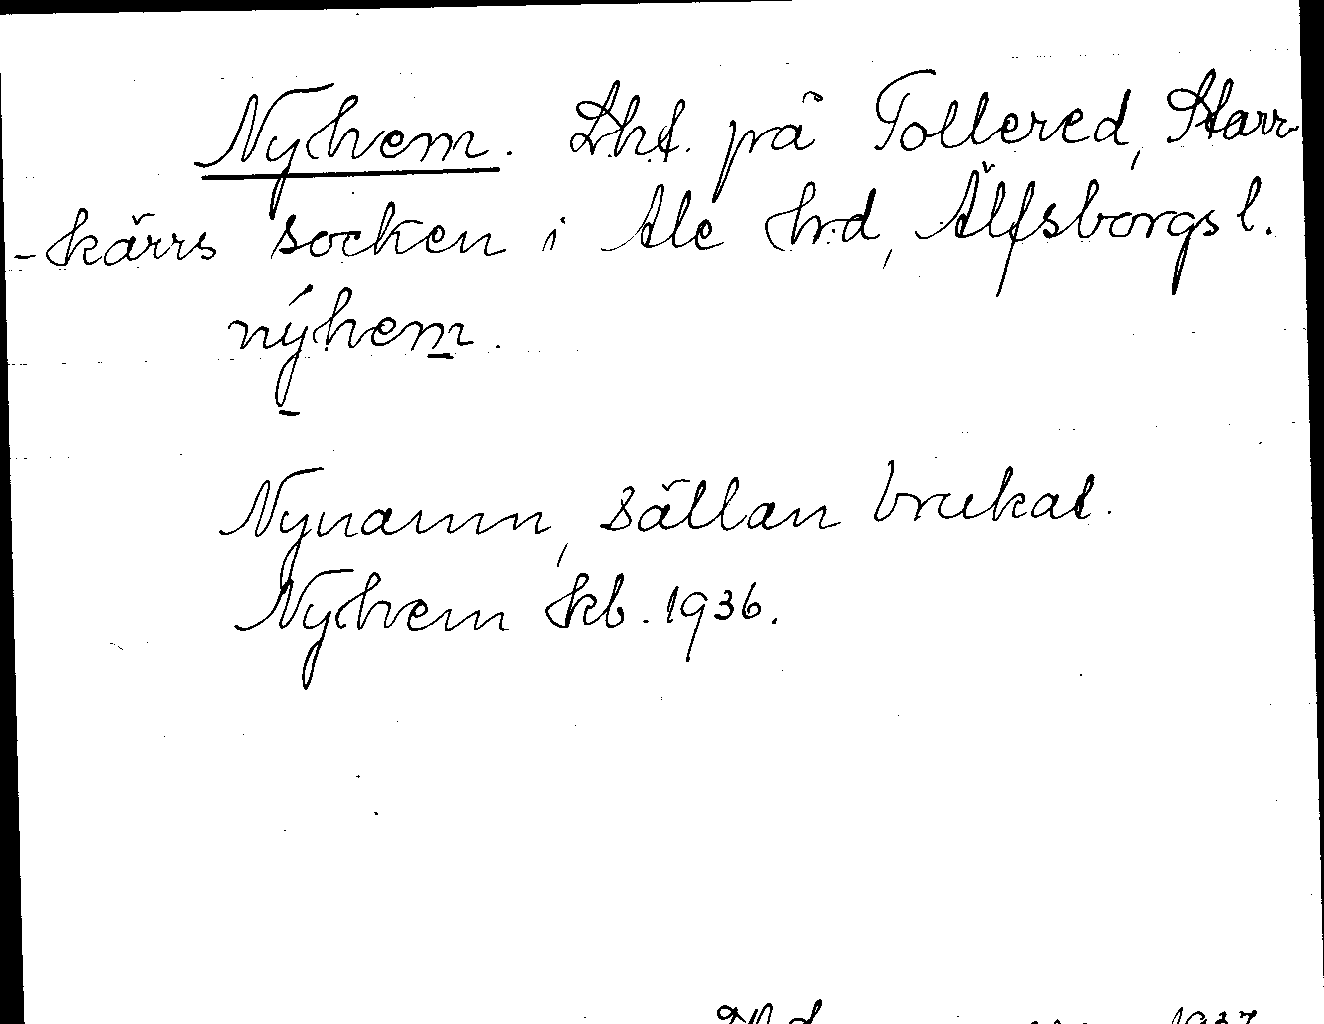 Nyhem. Lht. på Tollered, Starr-
-kärrs socken i Ale hrd, Älfsborgs l.
nýhem.
Nynamn, sällan brukat.
Nyhem kb. 1936.
1937